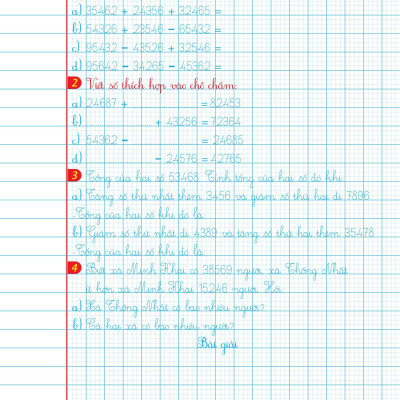 a) 35462 + 24356 + 32465 =
b) 54326 + 23546 - 65432 =
c) 95432 - 43526 + 32546 =
d) 95642 - 34265 - 45362 =
2 Viết số thích hợp vào chỗ chấm:
a) 24687 + = 82453
b) + 43256 = 72364
c) 54362 - = 24685
d) - 24576 = 42765
3 Tổng của hai số 53468. Tính tổng của hai số đó khi
a) Tăng số thứ nhất thêm 3456 và giảm số thứ hai đi 7896
-Tổng của hai số khi đó là
b) Giảm số thứ nhất đi 4389 và tăng số thứ hai thêm 35478
-Tổng của hai số khi đó là
4 Biết xã Minh Khai có 38569 người, xã Thống Nhất
ít hơn xã Minh Khai 15246 người. Hỏi:
a) Xã Thống Nhất có bao nhiêu người?
b) Cả hai xã có bao nhiêu người?
Bài giải